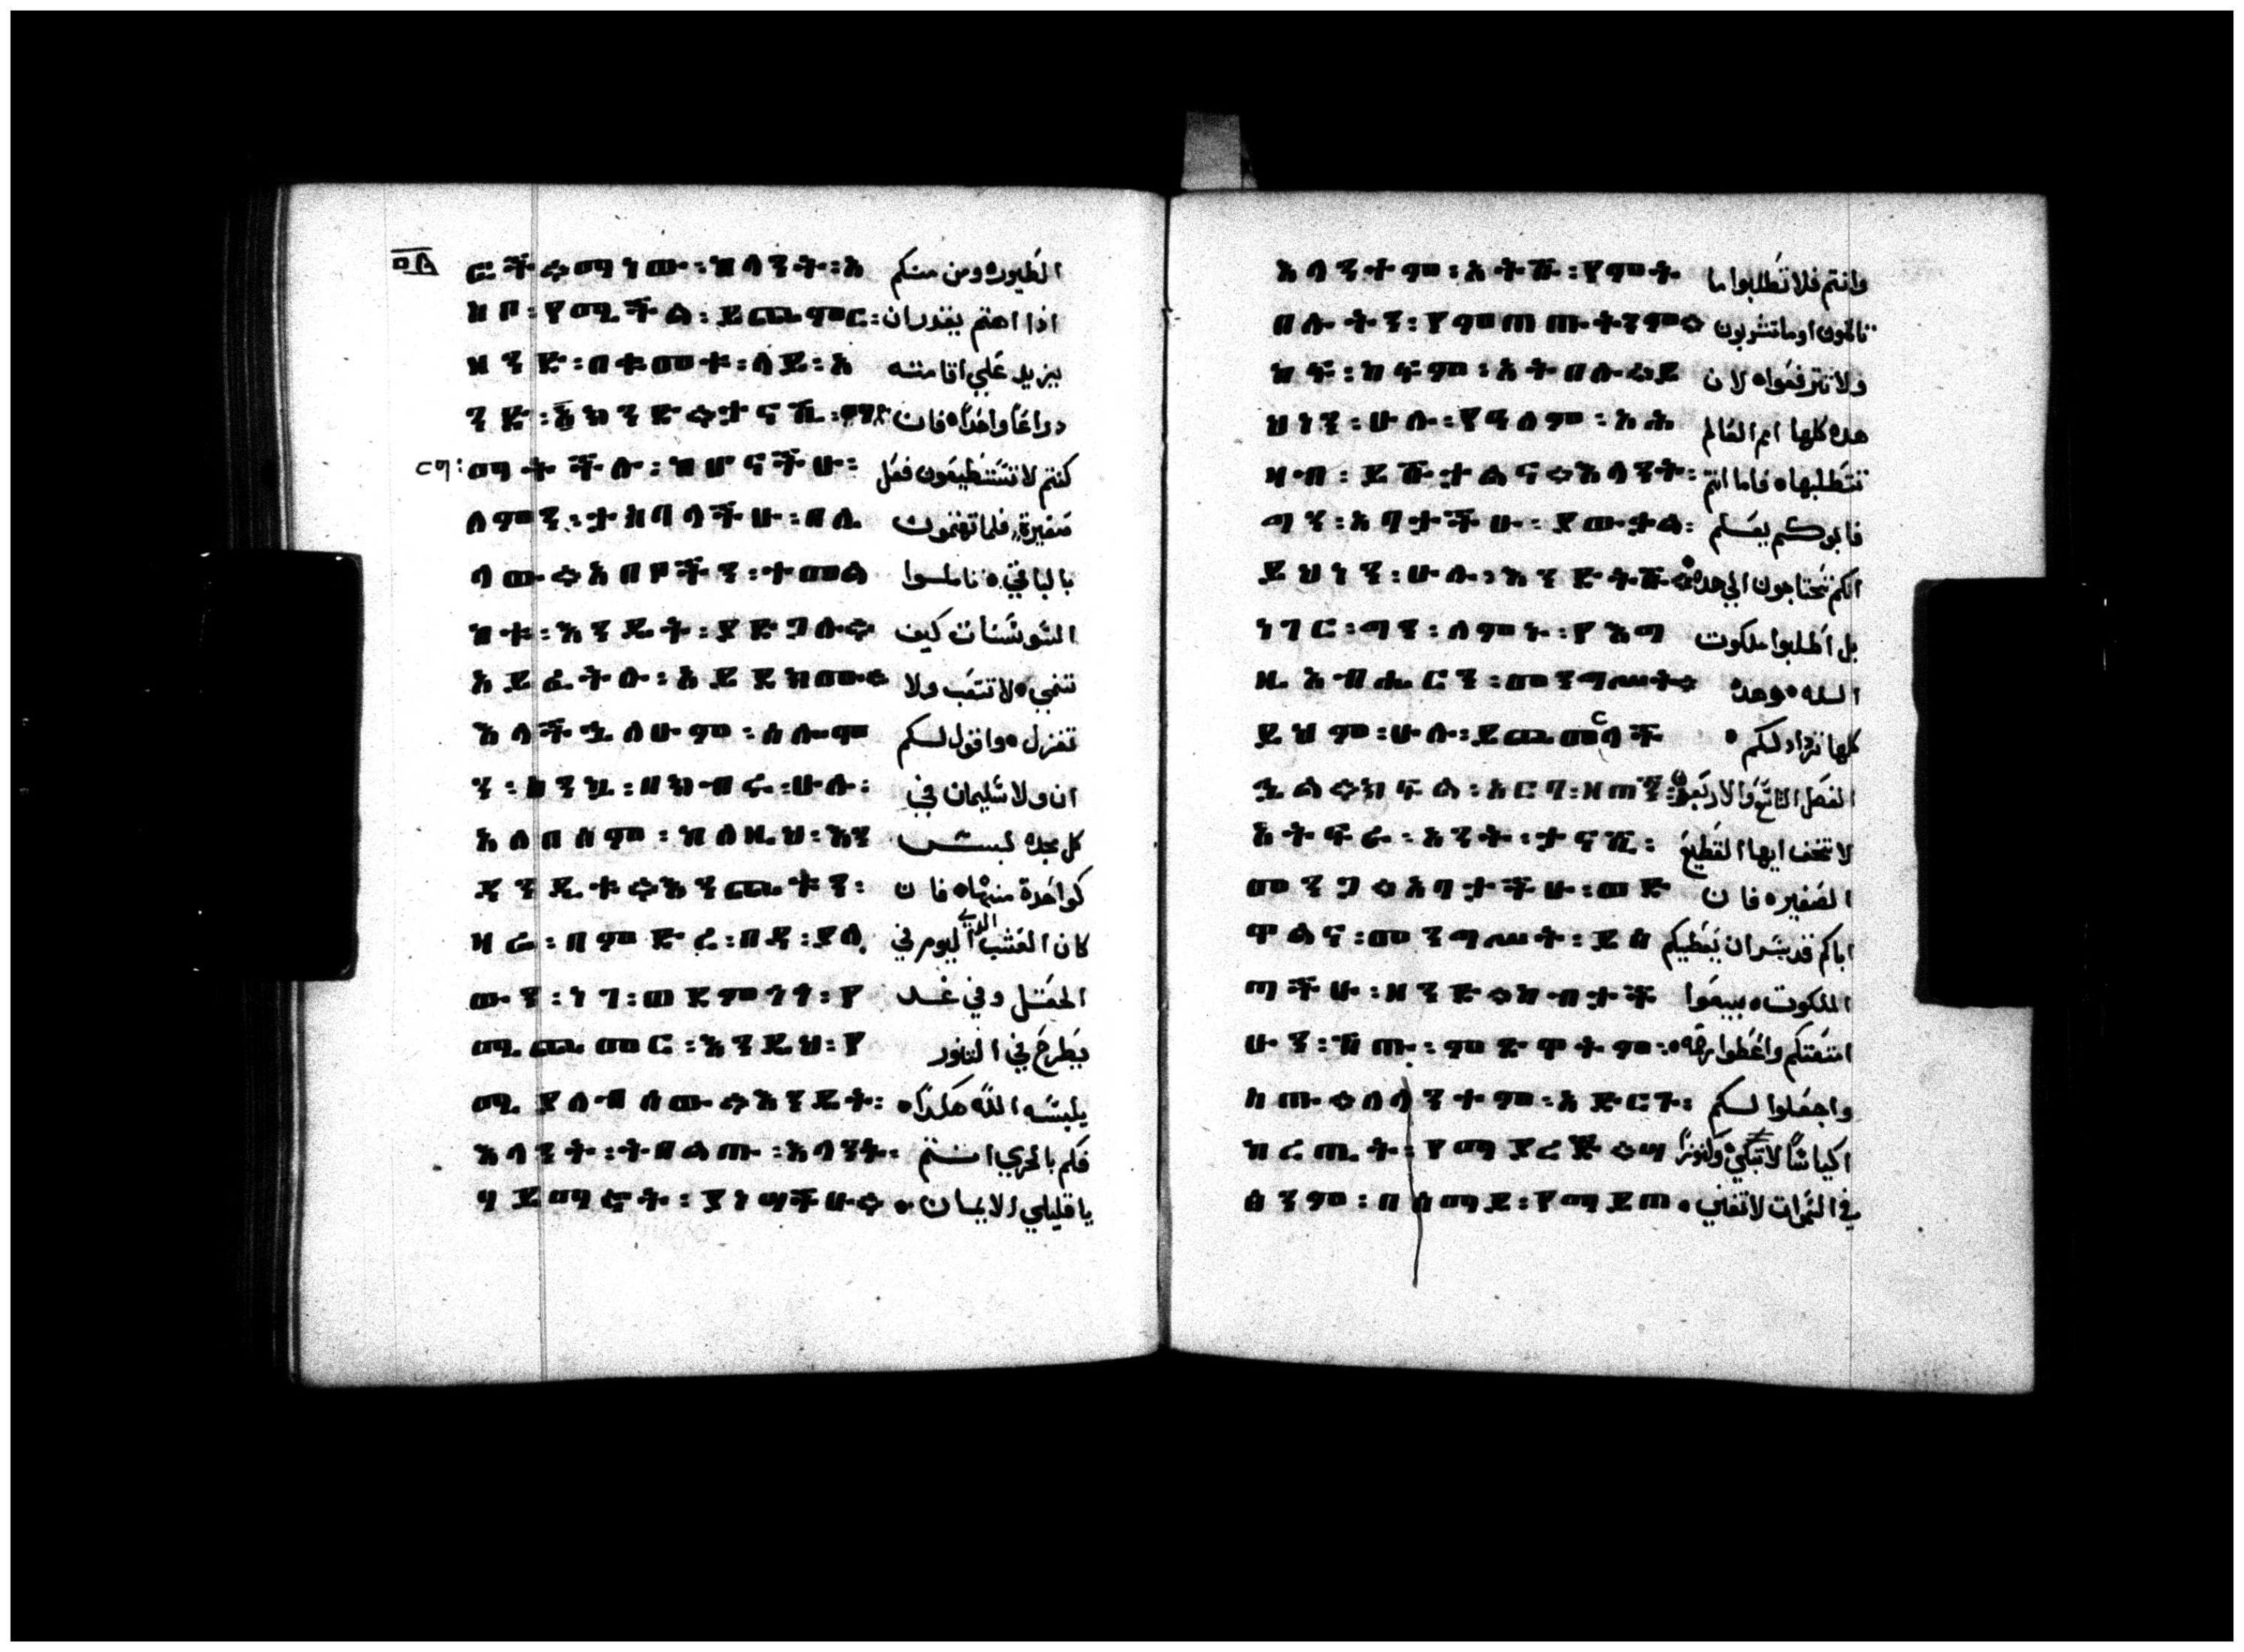 ፵፰
ርቾ። ማነው፡ ከላንት፡ አ الطيور ومن منكم
ዘቦ፡ የሚቾል፡ ይጨምር፡ اذا اهتم يقدر ان
ዘንድ፡ በቱመቱ፡ ላይ፡ አ يزيد علي اقامته
ንድ፡ ክንድ። ታናሺ፡ ዓግ دراعًا واحدًا ٥ فان
ር፡ ማትቾሉ፡ ከሆናቾሁ፡ كنتم لا تستطيعون فعل
ለምን፡ ታዝባላቾሁ፡ በሌ صغيرة فلما تهتمون
ላው። አበቦችን፡ ተመል بالباقي ٥ تاملوا
ከቱ፡ እንዲት፡ ያድጋሉ። السوسنات كيف
አይፈትሉ፡ አይደክሙ። تنمي ٥ لا تتعب ولا
እላቾኋለሁም፡ ሰሎሞ تغزل ٥ واقول لكم
ን፡ ከንኳ፡ በክብሩ፡ ሁሉ፡ ان ولا سليمان في
አለበሰም፡ ከለዚህ፡ እን كل مجده لبس
ደንዲቱ። እንጨቱን፡ كواحدة منها ٥ فان
ዛሬ፡ በምድረ፡ በዳ፡ ያለ كان العشب الدي اليوم في
ውን፡ ነገ፡ ወደምንን፡ የ الحقل وفي غد
ሚጨመር፡ እንዲህ፡ የ يطرح في التنور
ሚያለብሰው። እንዲት፡ يلبسه الله هكدا ٥
እላንት፡ ትበልጡ፡ እላንት፡ فكم بالحري انتم
ሃይማኖት፡ ያነሣቾሁ። يا قليلي الايمان ٥
እላንተም፡ አትሹ፡ የምት وانتم فلا تطلبوا ما
በሉትን፡ የምጠጡትንም። تاكلون او ما تشربون
ከፍ፡ ከፍም፡ አትበሉ። ይ ولا تترفعوا ٥ لان
ህነን፡ ሁሉ፡ የዓለም፡ አሕ هده كلها امم العالم
ዛብ፡ ይሹታልና። እላንት፡ تتطلبها ٥ فاما انتم
ማን፡ አባታቾሁ፡ ያውታል፡ فابوكم يعلم
ይህነን፡ ሁሉ፡ እንድትሹ። انكم تحتاجون الي هده ٥
ነገር፡ ማን፡ ለምኑ፡ የእግ بل اطلبوا ملكوت
ዚአብሔርን፡ መንግሥት። الله ٥ وهده
ይህም፡ ሁሉ፡ ይጨመርላቾ كلها تزداد لكم ٥
ኋል። ክፍል፡ አርባ፡ ዘጠኝ፡ الفصل التاسع والاربعون
አትፍራ፡ አንት፡ ታናሺ፡ لا تخف ايها القطيع
መንጋ። አባታቾሁ፡ ወድ الصغير ٥ فان
ዋልና፡ መንግሥት፡ ይስ اباكم قد سر ان يعطيكم
ጣቾሁ፡ ዘንድ። ከብታቾ الملكوت ٥ بيعوا
ሁን፡ ሽጡ፡ ምድዋትም፡ امتعتكم واعطوا
ስጡ። ለላንተም፡ አድርጉ፡ واجعلوا لكم
ከረጢት፡ የማያረጅ። ሣ اكياسًا لا تبلي ٥ وكنوزًا
ፅንም፡ በሰማይ፡ የማይጠ في السموات لا تفني ٥